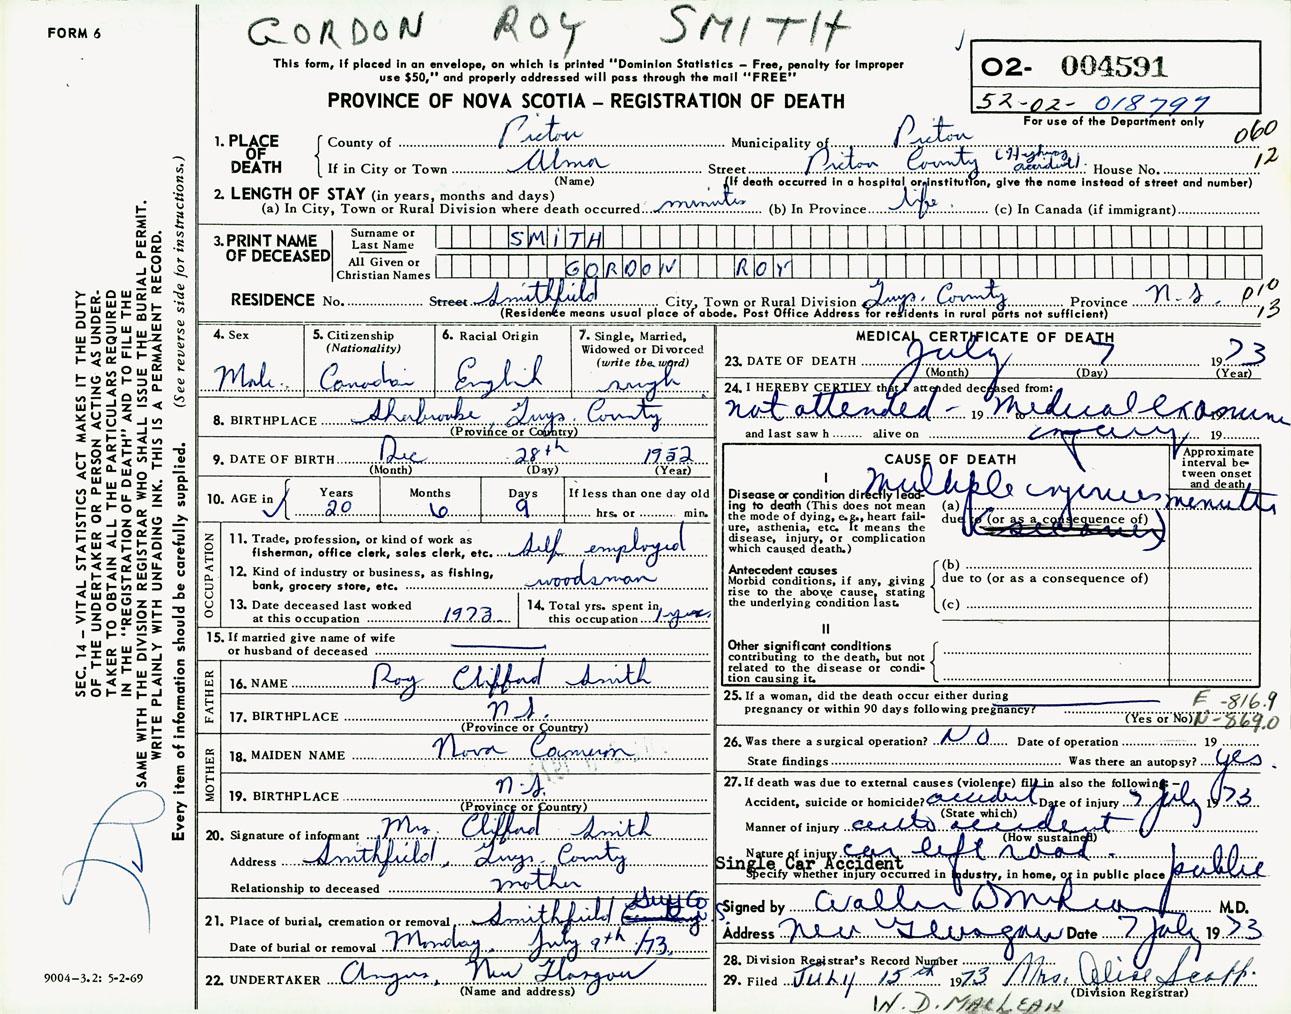 FORM 6
GORDON ROY SMITH
This form, if placed in an envelope, on which is printed "Dominion Statistics – Free, penalty for improper
use $50," and properly addressed will pass through the mail "FREE"
PROVINCE OF NOVA SCOTIA – REGISTRATION OF DEATH
02- 004591
52-02- 018797
For use of the Department only
060
12
1. PLACE OF DEATH
County of Pictou Municipality of Pictou
If in City or Town Alma Street Pictou County (Highway accident) House No.
(Name) (If death occurred in a hospital or institution, give the name instead of street and number)
2. LENGTH OF STAY (in years, months and days)
(a) In City, Town or Rural Division where death occurred minutes (b) In Province life (c) In Canada (if immigrant)
3. PRINT NAME OF DECEASED
Surname or Last Name SMITH
All Given or Christian Names GORDON ROY
RESIDENCE No. Street Smithfield City, Town or Rural Division Guys. County Province N.S.
010
13
(Residence means usual place of abode. Post Office Address for residents in rural parts not sufficient)
4. Sex Male
5. Citizenship (Nationality) Canadian
6. Racial Origin English
7. Single, Married, Widowed or Divorced (write the word) single
8. BIRTHPLACE Sherbrooke, Guys. County
(Province or Country)
9. DATE OF BIRTH Dec 28th 1952
(Month) (Day) (Year)
10. AGE in Years 20 Months 6 Days 9 If less than one day old hrs. or min.
OCCUPATION
11. Trade, profession, or kind of work as fisherman, office clerk, sales clerk, etc. Self employed
12. Kind of industry or business, as fishing, bank, grocery store, etc. woodsman
13. Date deceased last worked at this occupation 1973
14. Total yrs. spent in this occupation 1 year
15. If married give name of wife or husband of deceased
FATHER
16. NAME Roy Clifford Smith
17. BIRTHPLACE N.S.
(Province or Country)
MOTHER
18. MAIDEN NAME Nova Cameron
19. BIRTHPLACE N.S.
(Province or Country)
20. Signature of informant Mrs. Clifford Smith
Address Smithfield, Guys. County
Relationship to deceased mother
21. Place of burial, cremation or removal Smithfield Guys Co
Date of burial or removal Monday, July 9th /73
22. UNDERTAKER Angus, New Glasgow
(Name and address)
MEDICAL CERTIFICATE OF DEATH
23. DATE OF DEATH July 7 1973
(Month) (Day) (Year)
24. I HEREBY CERTIFY that I attended deceased from:
not attended – 19 medical examiner 19
and last saw h alive on inquiry 19
CAUSE OF DEATH
Approximate interval between onset and death
I
Disease or condition directly leading to death (This does not mean the mode of dying, e.g., heart failure, asthenia, etc. It means the disease, injury, or complication which caused death.)
(a) Multiple injuries minutes
due to (or as a consequence of)
Antecedent causes
Morbid conditions, if any, giving rise to the above cause, stating the underlying condition last.
(b)
due to (or as a consequence of)
(c)
II
Other significant conditions
contributing to the death, but not related to the disease or condition causing it.
25. If a woman, did the death occur either during pregnancy or within 90 days following pregnancy?
(Yes or No)
E -816.9
N-869.0
26. Was there a surgical operation? NO Date of operation 19
State findings Was there an autopsy? yes.
27. If death was due to external causes (violence) fill in also the following:–
Accident, suicide or homicide? accident Date of injury 7 July 1973
(State which)
Manner of injury auto accident
(How sustained)
Nature of injury car left road.
Single Car Accident
Specify whether injury occurred in industry, in home, or in public place public
Signed by M.D.
Address New Glasgow Date 7 July 1973
28. Division Registrar's Record Number
29. Filed July 15th 1973 Mrs. Alice Scott.
(Division Registrar)
W. D. MACLEAN
SEC. 14 – VITAL STATISTICS ACT MAKES IT THE DUTY
OF THE UNDERTAKER OR PERSON ACTING AS UNDER-
TAKER TO OBTAIN ALL THE PARTICULARS REQUIRED
IN THE "REGISTRATION OF DEATH" AND TO FILE THE
SAME WITH THE DIVISION REGISTRAR WHO SHALL ISSUE THE BURIAL PERMIT.
WRITE PLAINLY WITH UNFADING INK. THIS IS A PERMANENT RECORD.
Every item of information should be carefully supplied. (See reverse side for instructions.)
9004–3.2: 5-2-69